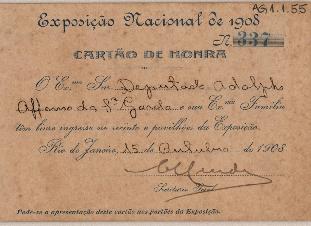 AG1.1.55
Exposição Nacional de 1908
N. 337
CARTÃO DE HONRA
O Ex.mo Snr. Deputado Adolpho
Affonso da S.ª Gordo e sua Ex.ma Familia
têm livre ingresso no recinto e pavilhões da Exposição.
Rio de Janeiro, 15 de Outubro de 1908
Pede-se a apresentação deste cartão nos portões da Exposição.